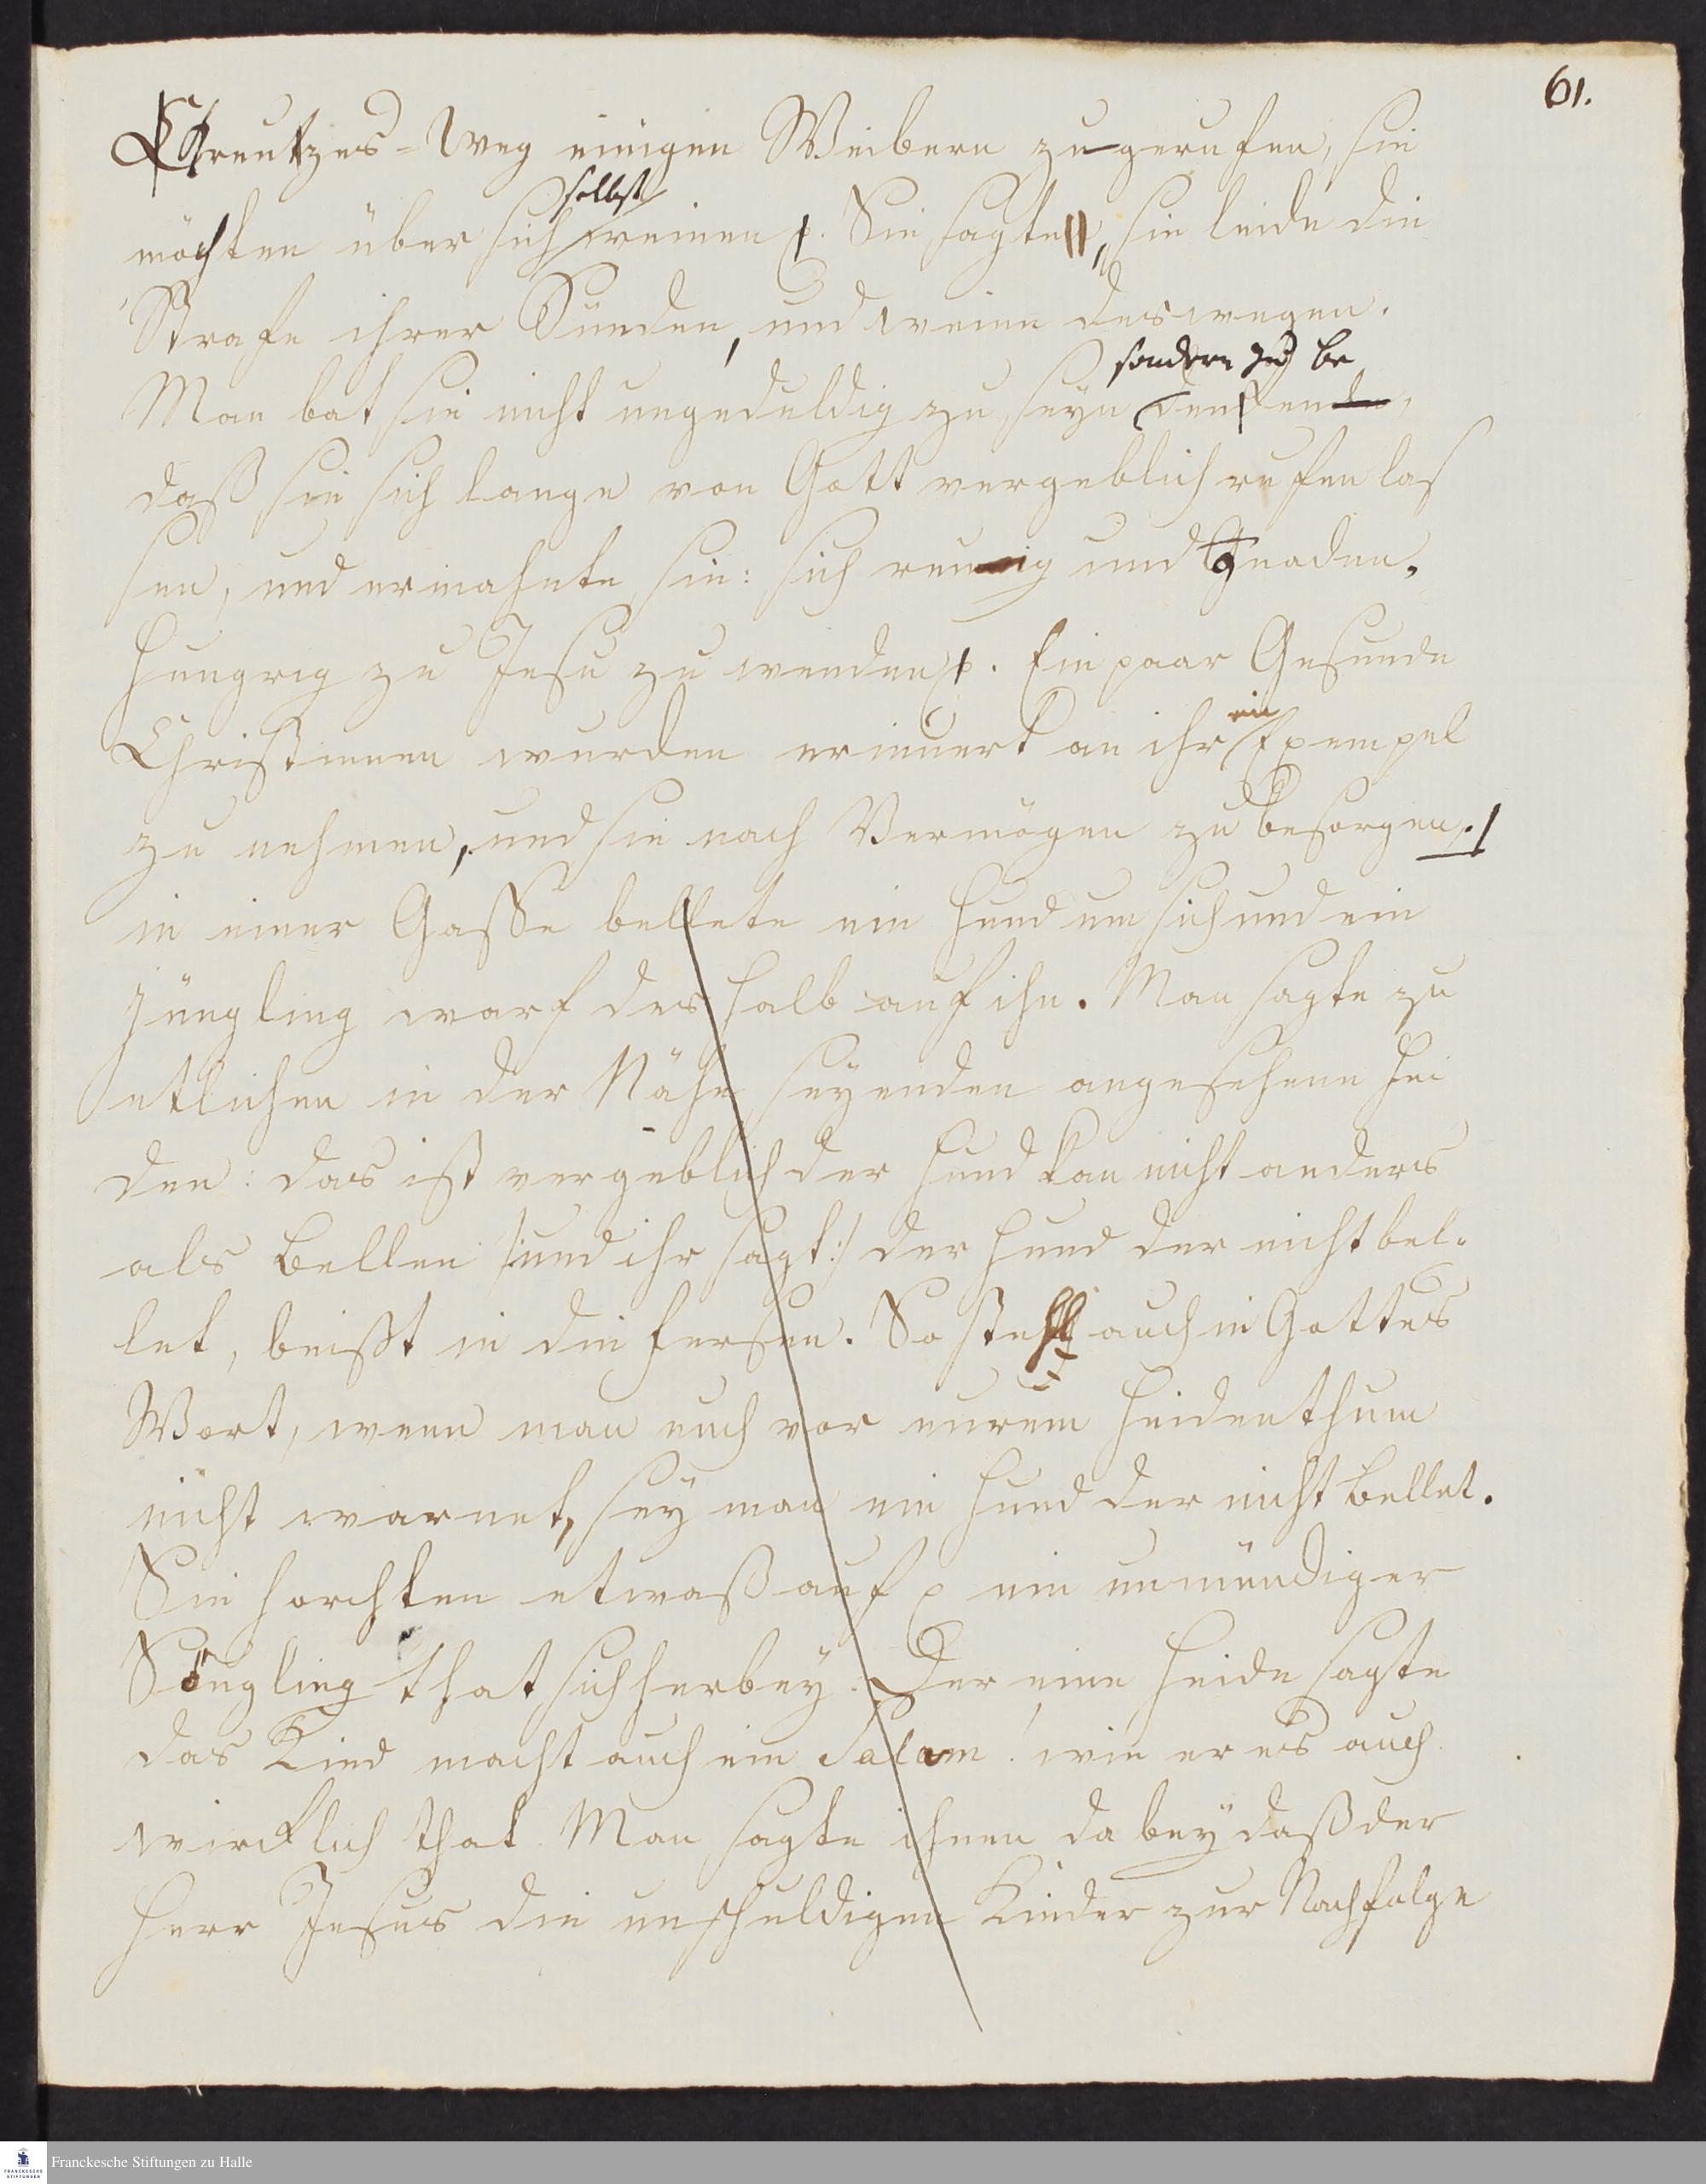 61.
Creutzes-Weg einigen Weibern zugerufen, sie
möchten über sich selbst weinen p. Sie sagte, sie leide die
Strafe ihrer Sünden, und weine deswegen.
Man bat sie nicht ungeduldig zu seyn sondern zu bedenken,
daß sie sich lange von Gott vergeblich rufen las
sen, und ermahnte sie: sich reuig und Gnaden-
hungrig zu Jesu zu wenden p. Ein paar Gesunde
Christinnen wurden erinnert an ihr ein Exempel
zu nehmen, und sie nach Vermögen zu besorgen.
in einer Gasse bellete ein Hund um sich und ein
Jüngling warf deshalb auf ihn. Man sagte zu
etlichen in der Nähe seyenden angesehene Hei
den: das ist vergeblich der Hund kan nicht anders
als Bellen /:und ihr sagt:/ der Hund der nicht bel-
let, beißt in die fersen. So steht auch in Gottes
Wort, wenn man euch vor eurem Heidenthum
nicht warnet, sey man ein Hund der nicht Bellet.
Sie horchten etwaß auf p ein unmündiger
Söugling that sich herbey. Der eine Heide sagte
das Kind macht auch ein Salam! wie er es auch
wircklich that. Man sagte ihnen da bey daß der
Herr Jesus die unschuldigen Kinder zur Nachfolge
Franckesche Stiftungen zu Halle